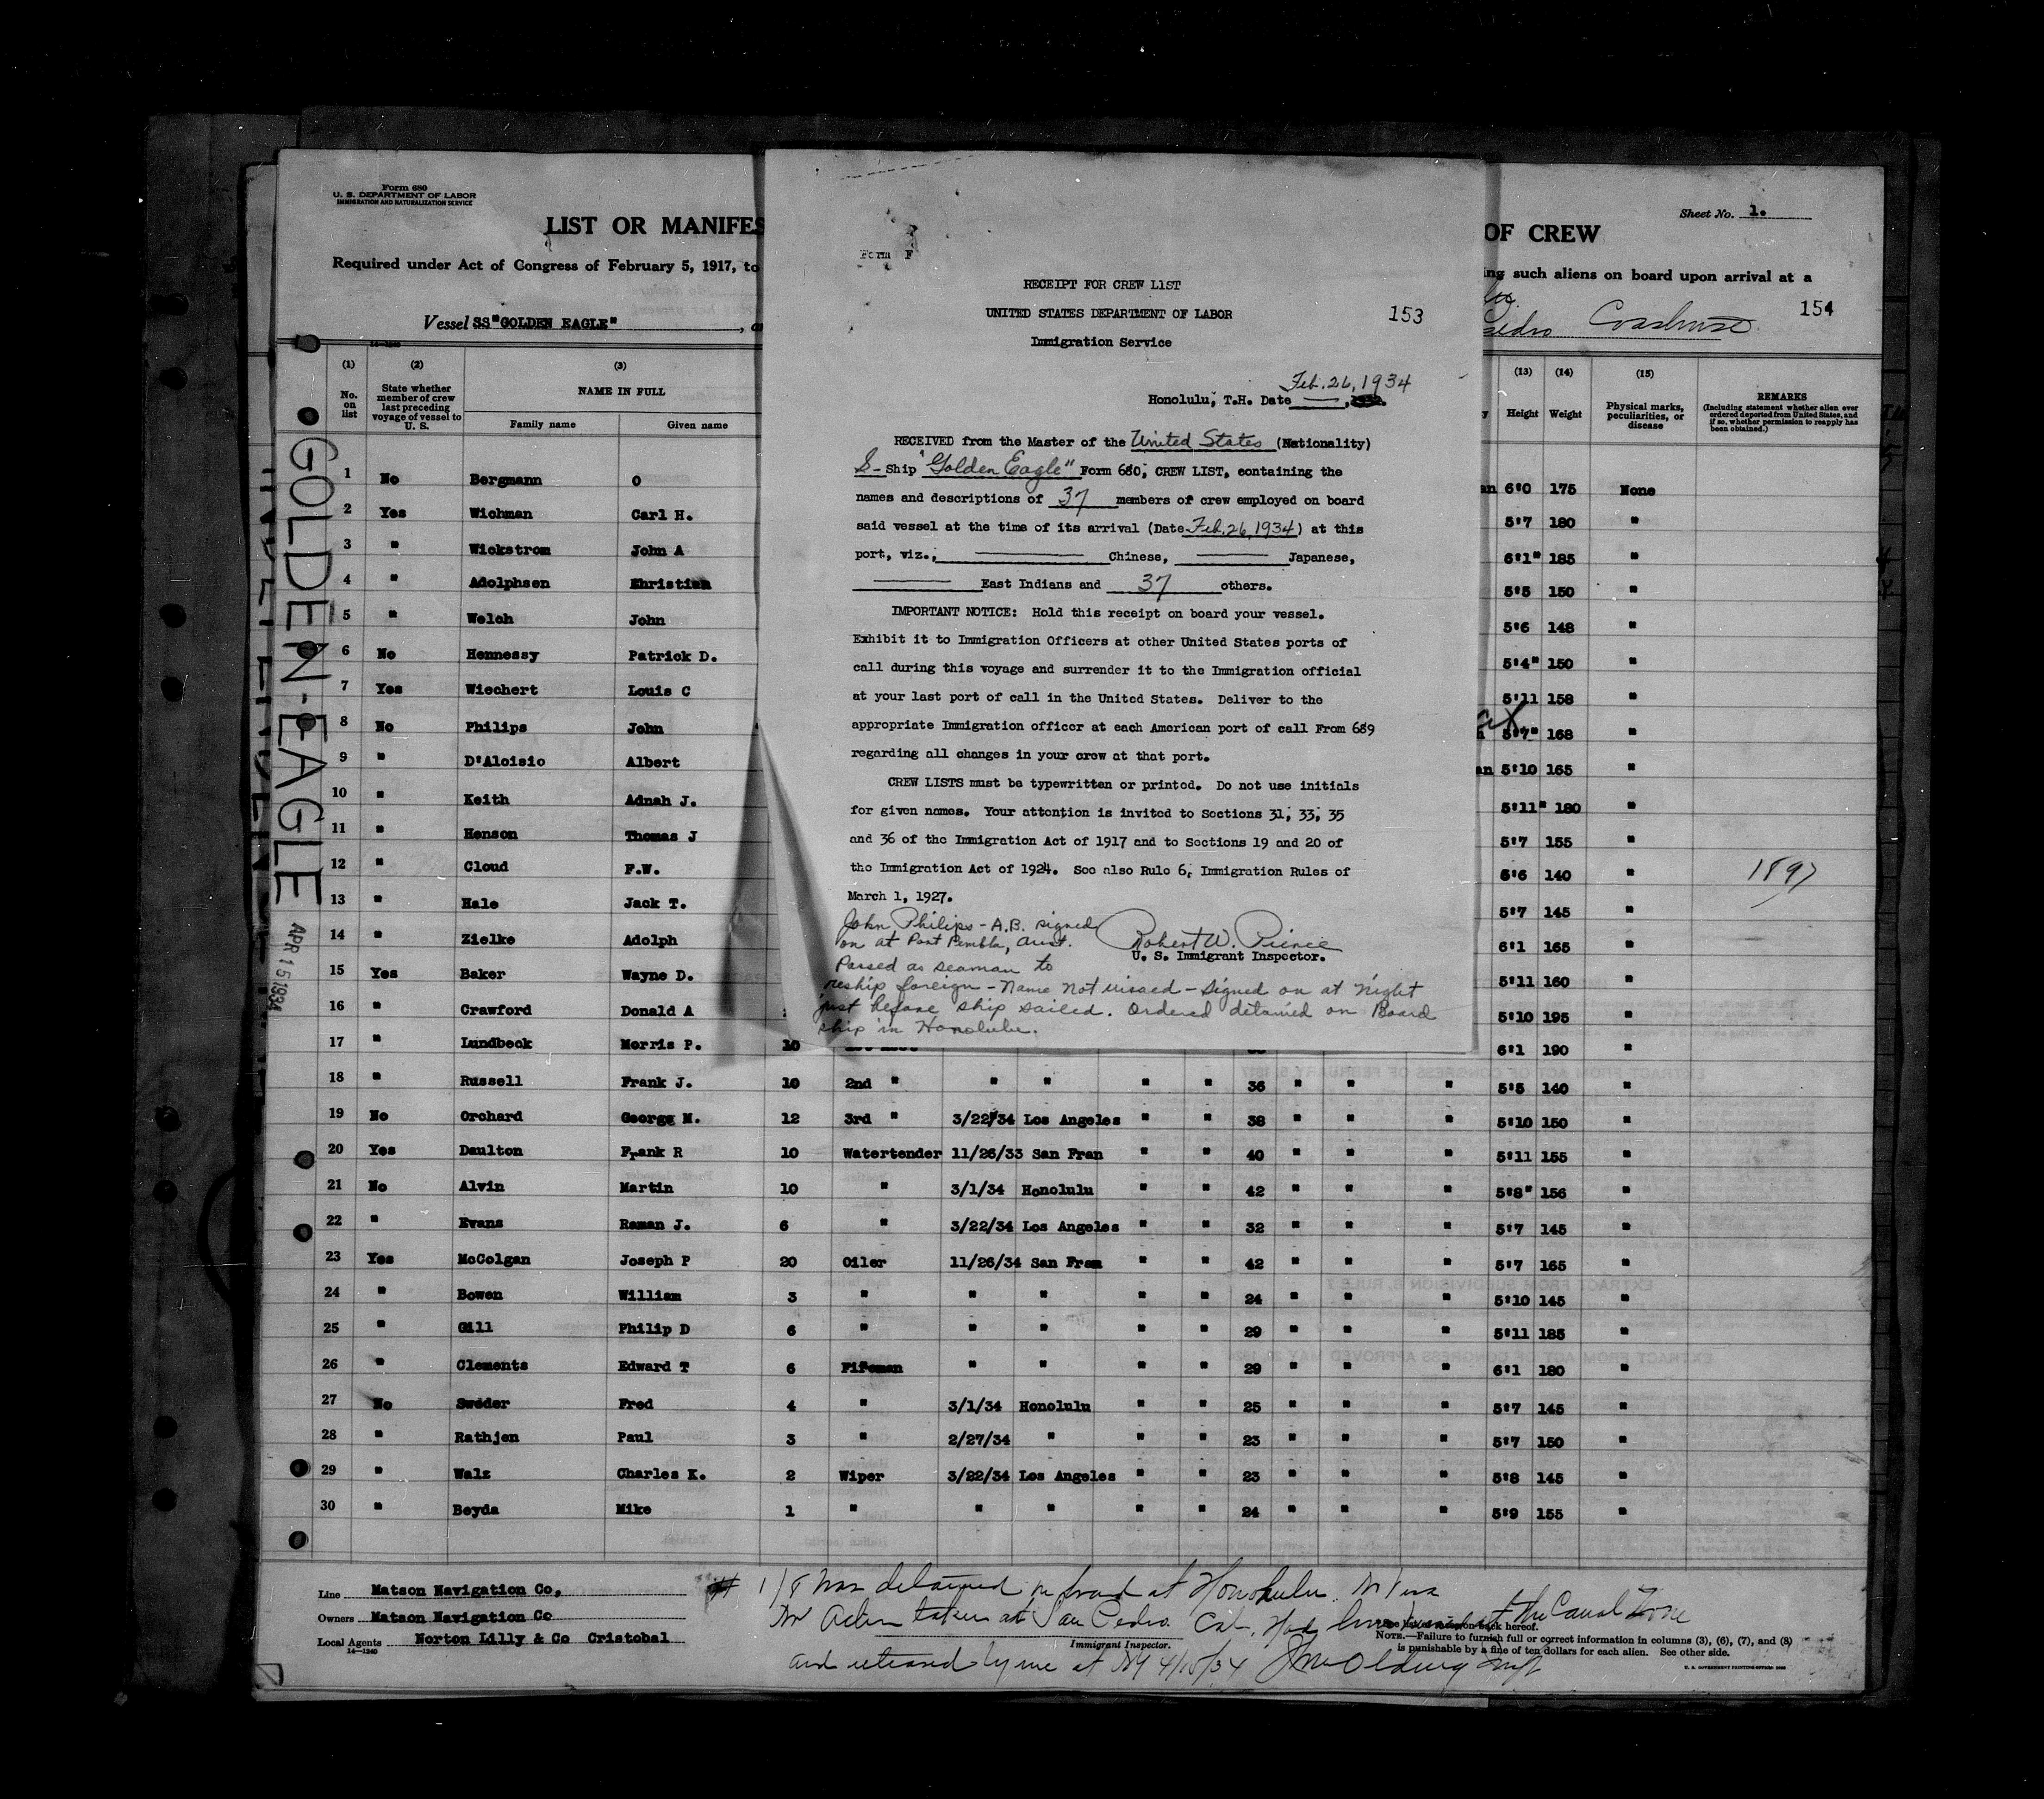 Form 680
U. S. DEPARTMENT OF LABOR
IMMIGRATION AND NATURALIZATION SERVICE
LIST OR MANIFES
Required under Act of Congress of February 5, 1917, to
Vessel SS "GOLDEN EAGLE"
Form F
RECEIPT FOR CREW LIST
UNITED STATES DEPARTMENT OF LABOR
153
Immigration Service
Feb. 26, 1934
Honolulu, T.H. Date
RECEIVED from the Master of the United States (Nationality)
S- Ship "Golden Eagle" Form 680, CREW LIST, containing the
names and descriptions of 37 members of crew employed on board
said vessel at the time of its arrival (Date Feb. 26, 1934) at this
port, viz., Chinese, Japanese,
East Indians and 37 others.
IMPORTANT NOTICE: Hold this receipt on board your vessel.
Exhibit it to Immigration Officers at other United States ports of
call during this voyage and surrender it to the Immigration official
at your last port of call in the United States. Deliver to the
appropriate Immigration officer at each American port of call From 689
regarding all changes in your crew at that port.
CREW LISTS must be typewritten or printed. Do not use initials
for given names. Your attention is invited to Sections 31, 33, 35
and 36 of the Immigration Act of 1917 and to Sections 19 and 20 of
the Immigration Act of 1924. See also Rule 6, Immigration Rules of
March 1, 1927.
John Philips - A.B. signed
on at Port Pembla, Aust.
Robert W. Pierce
U. S. Immigrant Inspector.
Passed as seaman to
reship foreign - Name not visaed - Signed on at night
just before ship sailed. Ordered detained on Board
ship in Honolulu.
Sheet No. 1.
OF CREW
ing such aliens on board upon arrival at a
154
Pedro Coastwise
(1) (2) (3) (13) (14) (15)
No. on list
State whether member of crew last preceding voyage of vessel to U. S.
NAME IN FULL
Family name Given name
Height Weight
Physical marks, peculiarities, or disease
REMARKS
(Including statement whether alien ever ordered deported from United States, and if so, whether permission to reapply has been obtained.)
GOLDEN-EAGLE
APR 15 1934
1 No Bergmann O an 6'0 175 None
2 Yes Wichman Carl H. 5'7 180 "
3 " Wickstrom John A 6'1" 185 "
4 " Adolphsen Khristian 5'5 150 "
5 " Welch John 5'6 148 "
6 No Hennessy Patrick D. 5'4" 150 "
7 Yes Wiechert Louis C 5'11 158 "
8 No Philips John 5'7" 168 "
9 " D'Aloisio Albert an 5'10 165 "
10 " Keith Adnah J. 5'11" 180 "
11 " Henson Thomas J 5'7 155 "
12 " Cloud F.W. 5'6 140 " 1897
13 " Hale Jack T. 5'7 145 "
14 " Zielke Adolph 6'1 165 "
15 Yes Baker Wayne D. 5'11 160 "
16 " Crawford Donald A 5'10 195 "
17 " Lundbeck Morris P. 10 6'1 190 "
18 " Russell Frank J. 10 2nd " " " " " 36 " " " 5'5 140 "
19 No Orchard Georgg M. 12 3rd " 3/22/34 Los Angeles " " 38 " " " 5'10 150 "
20 Yes Daulton Frank R 10 Watertender 11/26/33 San Fran " " 40 " " " 5'11 155 "
21 No Alvin Martin 10 " 3/1/34 Honolulu " " 42 " " " 5'8" 156 "
22 " Evans Raman J. 6 " 3/22/34 Los Angeles " " 32 " " " 5'7 145 "
23 Yes McColgan Joseph P 20 Oiler 11/26/34 San Fran " " 42 " " " 5'7 165 "
24 " Bowen William 3 " " " " " 24 " " " 5'10 145 "
25 " Gill Philip D 6 " " " " " 29 " " " 5'11 185 "
26 " Clements Edward T 6 Fifeman " " " " 29 " " " 6'1 180 "
27 No Sweder Fred 4 " 3/1/34 Honolulu " " 25 " " " 5'7 145 "
28 " Rathjen Paul 3 " 2/27/34 " " " 23 " " " 5'7 150 "
29 " Walz Charles K. 2 Wiper 3/22/34 Los Angeles " " 23 " " " 5'8 145 "
30 " Beyda Mike 1 " " " " " 24 " " " 5'9 155 "
Line Matson Navigation Co,
Owners Matson Navigation Co
Local Agents Norton Lilly & Co Cristobal
14—1240
# 1/8 was detained on board at Honolulu.
No Action taken at San Pedro Cal. Had at the Canal Zone
Immigrant Inspector.
on back hereof.
NOTE.—Failure to furnish full or correct information in columns (3), (6), (7), and (8)
is punishable by a fine of ten dollars for each alien. See other side.
and released by me at NY 4/15/34
U. S. GOVERNMENT PRINTING OFFICE